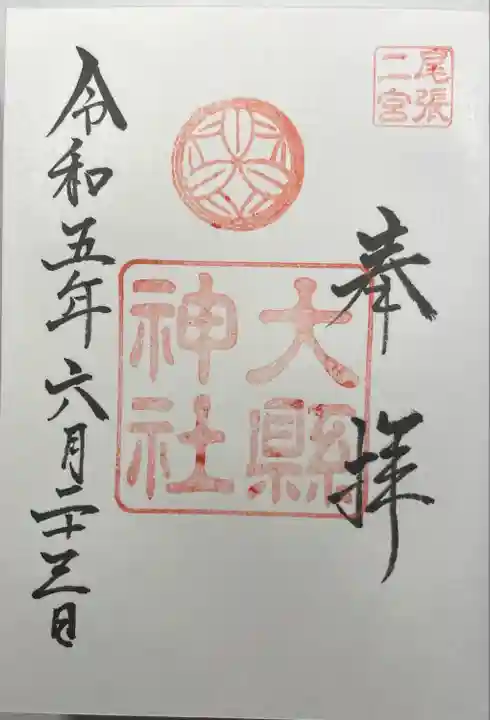 尾張
二宮
奉拝
大縣
神社
令和五年六月二十三日